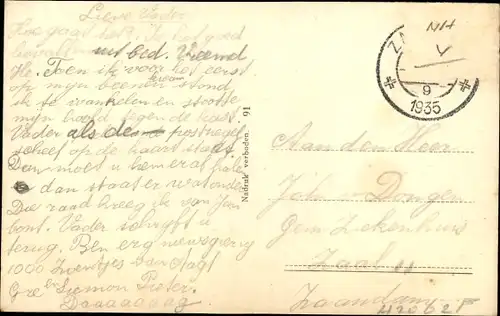 Lieve Vader
Hoe gaat het? Is het goed
uit bed. Vreemd
He. Toen ik voor het eerst
op mijn beenen stond
ik te wankelen en stootte
mijn hoofd tegen de kast.
Vader als de postzegel
scheef op de kaart staat
Dan moet u hem eraf halen
dan staat er wat onder
Die raad kreeg ik van Jan
bont. Vader schrijft u
terug. Ben erg nieuwsgierig
1000 zoentjes van Aagt
Gre en Siemon Pieter.
Daaaaaaag
Nadruk verboden. 91
MH
V
Z
9
1935
Aan den Heer
John v. Dongen
Gem. Ziekenhuis
Zaal 11
Zaandam